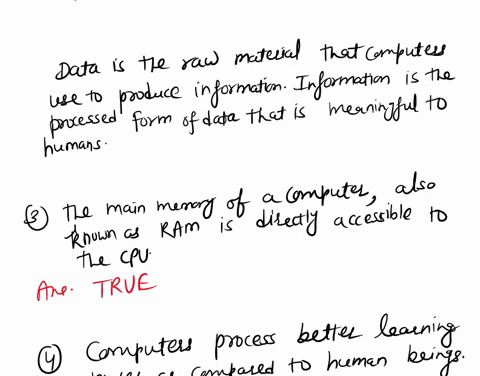 Data is the raw material that computers
use to produce information. Information is the
processed form of data that is meaningful to
humans.
(3) The main memory of a computer, also
known as RAM is directly accessible to
the CPU.
Ans. TRUE
(4) Computers process better learning
as compared to human beings.